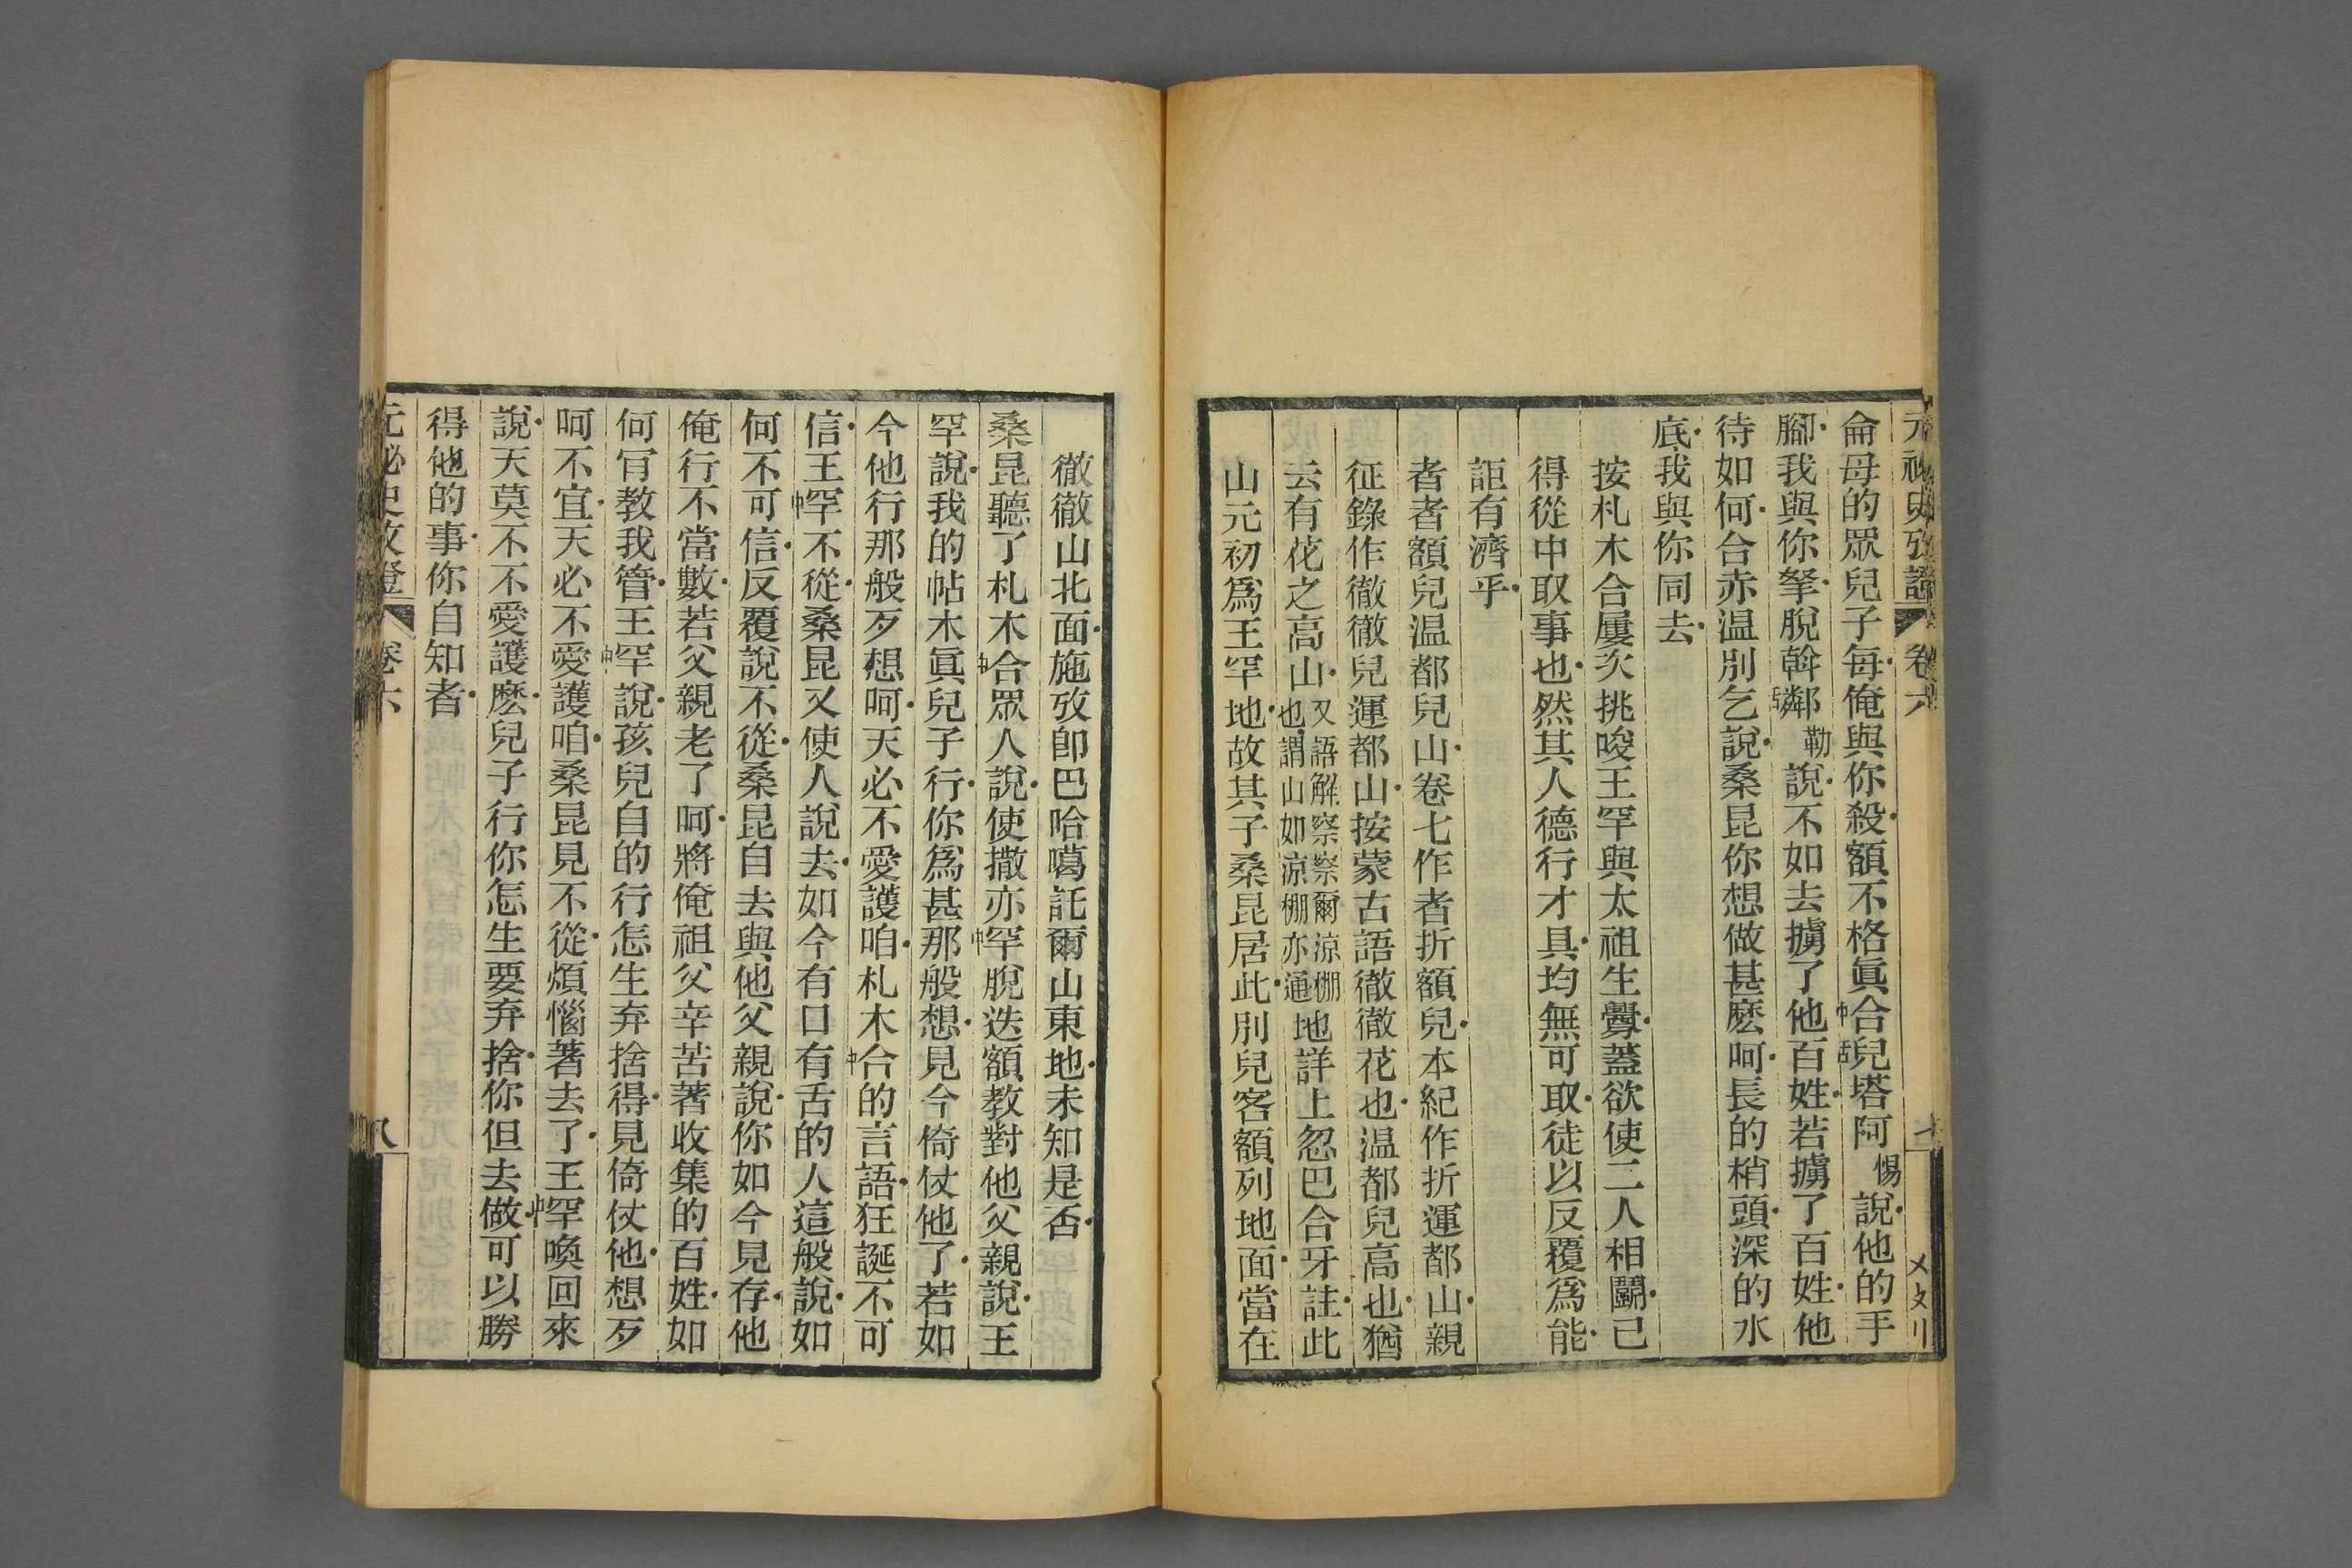 元祕史攷證 卷六
侖母的眾兒子每俺與你殺額不格眞中合舌兒塔阿惕說他的手
腳我與你拏脫斡舌鄰勒說不如去擄了他百姓若擄了百姓他
待如何合赤温別乞說桑昆你想做甚麽呵長的梢頭深的水
底我與你同去
按札木合屢次挑唆王罕與太祖生釁蓋欲使二人相鬭己
得從中取事也然其人德行才具均無可取徒以反覆爲能
詎有濟乎
者者額兒温都兒山卷七作者折額兒本紀作折運都山親
征錄作徹徹兒運都山按蒙古語徹徹花也温都兒高也猶
云有花之高山又語解察察爾涼棚也謂山如涼棚亦通地詳上忽巴合牙註此
山元初爲王罕地故其子桑昆居此別兒客額列地面當在
徹徹山北面施攷卽巴哈噶託爾山東地未知是否
桑昆聽了札木中合眾人說使撒亦中罕脫迭額教對他父親說王
罕說我的帖木眞兒子行你爲甚那般想見今倚仗他了若如
今他行那般歹想呵天必不愛護咱札木中合的言語狂誕不可
信王中罕不從桑昆又使人說去如今有口有舌的人這般說如
何不可信反覆說不從桑昆自去與他父親說你如今見存他
俺行不當數若父親老了呵將俺祖父辛苦著收集的百姓如
何肎教我管王中罕說孩兒自的行怎生弃捨得見倚仗他想歹
呵不宜天必不愛護咱桑昆見不從煩惱著去了王中罕喚回來
說天莫不不愛護麽兒子行你怎生要弃捨你但去做可以勝
得他的事你自知者
元祕史攷證 卷六 八